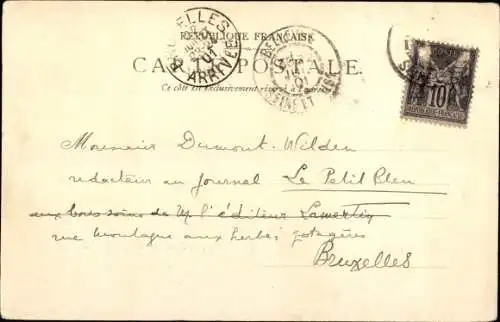 RÉPUBLIQUE FRANÇAISE
CARTE POSTALE.
Ce côté est exclusivement réservé à l'adresse
BRUXELLES
ARRIVÉE
10
RÉPUBLIQUE FRANÇAISE
Monsieur Dumont-Wilden
rédacteur au Journal Le Petit Bleu
aux bons soins de M l'éditeur Lamertin
rue Montagne aux herbes potagères
Bruxelles